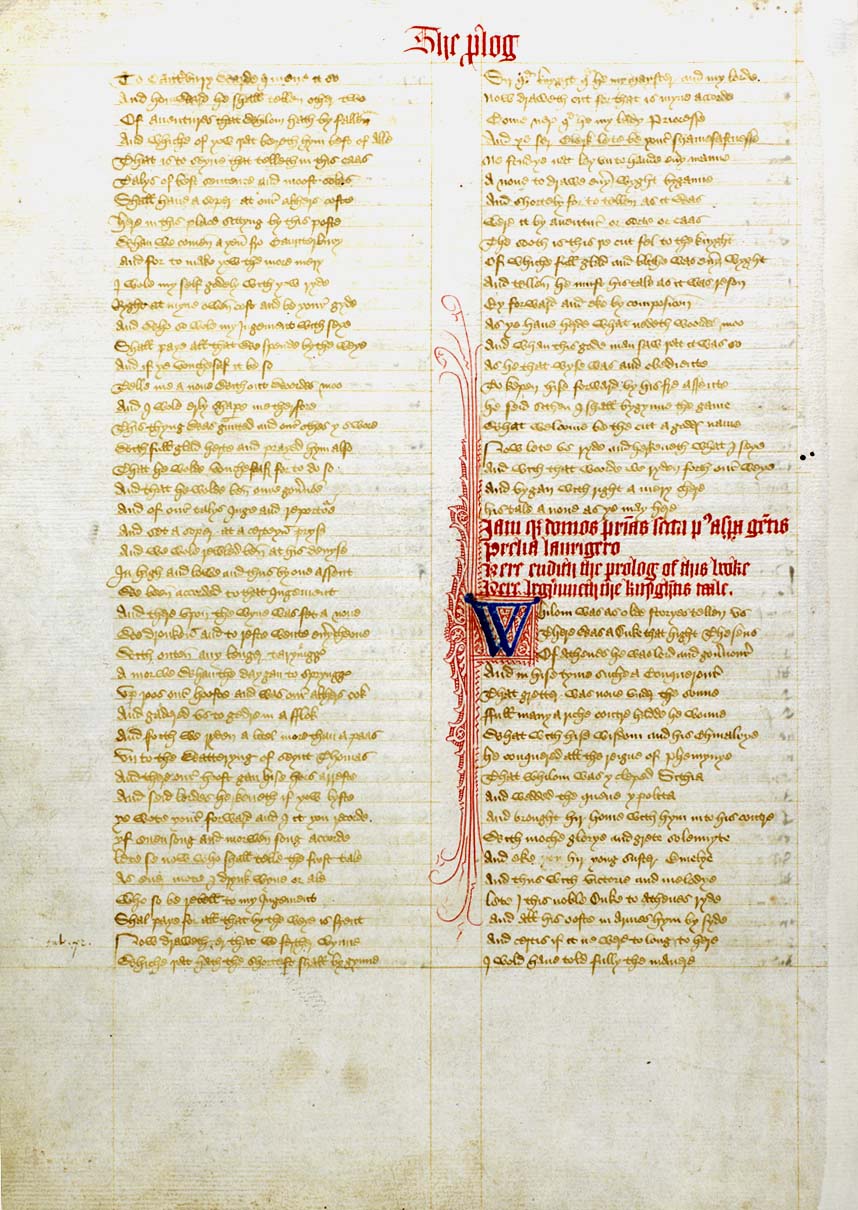 The prolog
To Cauntbury warde I mene it so
And homward he shall tellen other two
Of auentures that whylom hath by fallen
And whiche of yow þat bereth hym best of alle
That is to seyne that telleth in this caas
Talys of best sentence and moost solas
Shall haue a soper at oure alther coste
here in this place sittyng by this poste
Whan we comen a yen fro Caunterbury
And for to make yow the more mery
I wole my self goodly with yow ryde
Right at myne owen cost and be youre gyde
And who so wole my Iugement with seye
Shall paye all that we spende by the weye
And if ye vouchesauf it be so
Telle me a none withoute wordes moo
And I wole erly shape me therfore
This thyng was graunted and oure othes y swore
With full glad herte and prayed hym also
That he wolde vouchesauf for to do so
And that he wolde ben oure gouernour
And of oure talys Iuge and reportour
And set a soper at a certeyn prys
And we wole rewled ben at his deuyse
In high and lowe and thus by one assent
We been accorded to that Iugement
And there vpon the wyne was fet a none
We dronken and to reste wente euerychone
With outen any lenger taryinge
A morwe whan the day gan to sprynge
Vp roos oure hooste and was oure alther cok
And gadred vs to gedre in a flok
And forth we ryden a litel more than a paas
Vn to the Watteryng of seynt Thomas
And there oure hoost gan his hors arreste
And seid lordes herkeneth if yow leste
ye wote youre forward and I it you recorde
yf euensong and morwen song accorde
lete se now who shall telle the first tale
As euer mote I drynk wyne or ale
Who so be rebell to my Iugement
Shal paye for all that by the weye is spent
Now draweth cut er that we ferther wynne
Whiche þat hath the shortest shall bygynne
Sir knyght quod he my mayster and my lorde
Now draweth cut for that is myne accorde
Come ner quod he my lady Prioresse
And ye ser Clerk lete be youre shamefastnesse
Ne studye not ley vn to hande euery manne
A none to drawe euery wyght byganne
And shortely for to tellen as it was
Were it by auenture or sorte or caas
The sooth is this þe cut fel to the knyght
Of whiche full glad and blithe was euery wyght
And tellen he must his tale as it was reson
By forward and eke by composicion
As ye haue herde what nedeth woordes moo
And whan this gode man saw þat it was so
As he that wyse was and obediente
To kepen hise forward by his fre assente
he seid sithen I shall bygynne the game
What welcome be the cut a goddes name
Now lete vs ryde and herkeneth what I seye
And with that woorde we ryden forth oure weye
And bygan with right a mery chere
his tale a none as ye may here
Iamque domos patrias scitice post aspera gentis
Prelia laurigero
Here endith the prolog of this boke
Here begynneth the knyghtis tale.
Whilom was as olde storyes tellen vs
There was a Duke that hight Theseus
Of athenes he was lord and gouernour
And in hise tyme suche a Conquerour
That gretter was none vnder the sonne
ffull many a riche contre hadde he wonne
What with hise wisdom and his chiualrye
he conquered all the regne of ffemynye
That whilom was y cleped Sithia
And wedded the quene ypolita
And brought hir home with hym into his contre
With moche glorye and grete solempnyte
And eke hir yong suster Emelye
And thus with victorie and melodye
lete I this noble Duke to athenes ryde
And all his ooste in armes hym by syde
And certis if it ne were to long to here
I wold haue told fully the manere